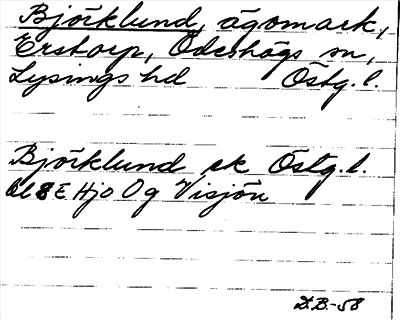 Björklund, ägomark,
Erstorp, Ödeshögs sn,
Lysings hd Östg.l.
Björklund ek Östg.l.
bl 8E Hjo Og Visjön
D.B.-58